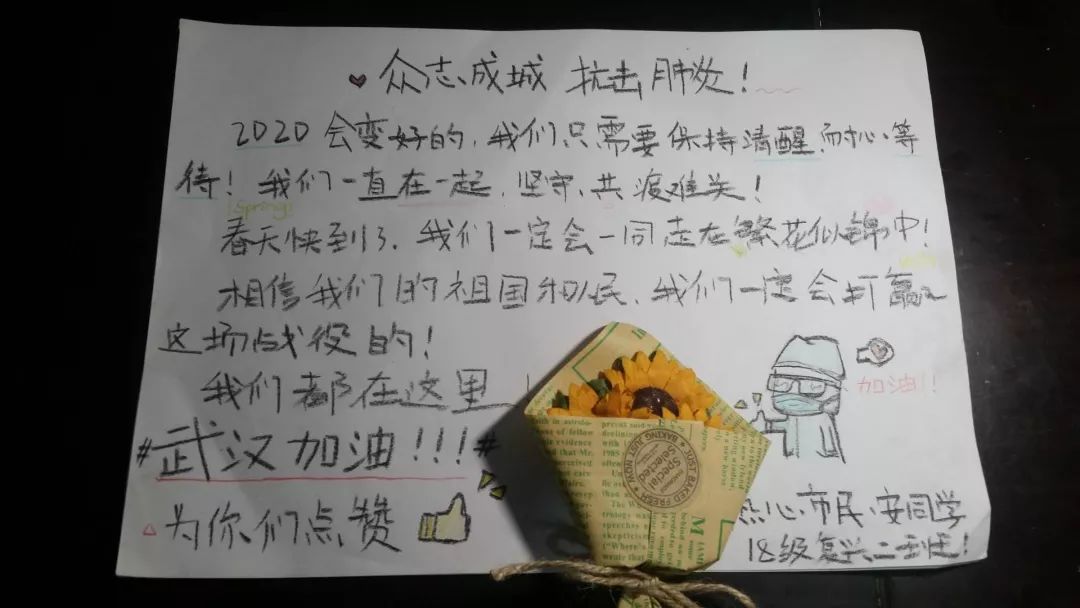 众志成城 抗击肺炎！
2020会变好的，我们只需要保持清醒，耐心等
待！我们一直在一起，坚守、共渡难关！
Spring!
春天快到了，我们一定会一同走在繁花似锦中！
相信我们的祖国和人民，我们一定会打赢
这场战役的！
我们都在这里
加油!!
#武汉加油!!!#
为你们点赞
热心市民·安同学
18级复兴二班！
JUST BAKED FRESH
Special
Selected
BAKING JUST NOW